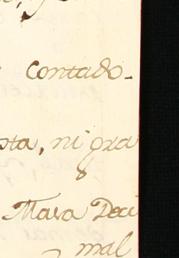 contado.
sta, ni gra
Mara Deci
mal